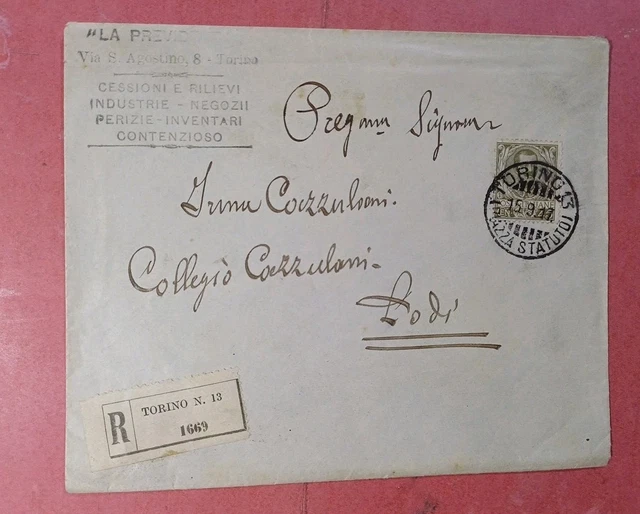 "LA PREVI
Via S. Agostino, 8 - Torino
CESSIONI E RILIEVI
INDUSTRIE - NEGOZII
PERIZIE - INVENTARI
CONTENZIOSO
Pregma Signora
Irma Cazzulani.
Collegio Cazzulani.
Lodi
TORINO 13
15.9.
(PIAZZA STATUTO)
R
TORINO N. 13
1669